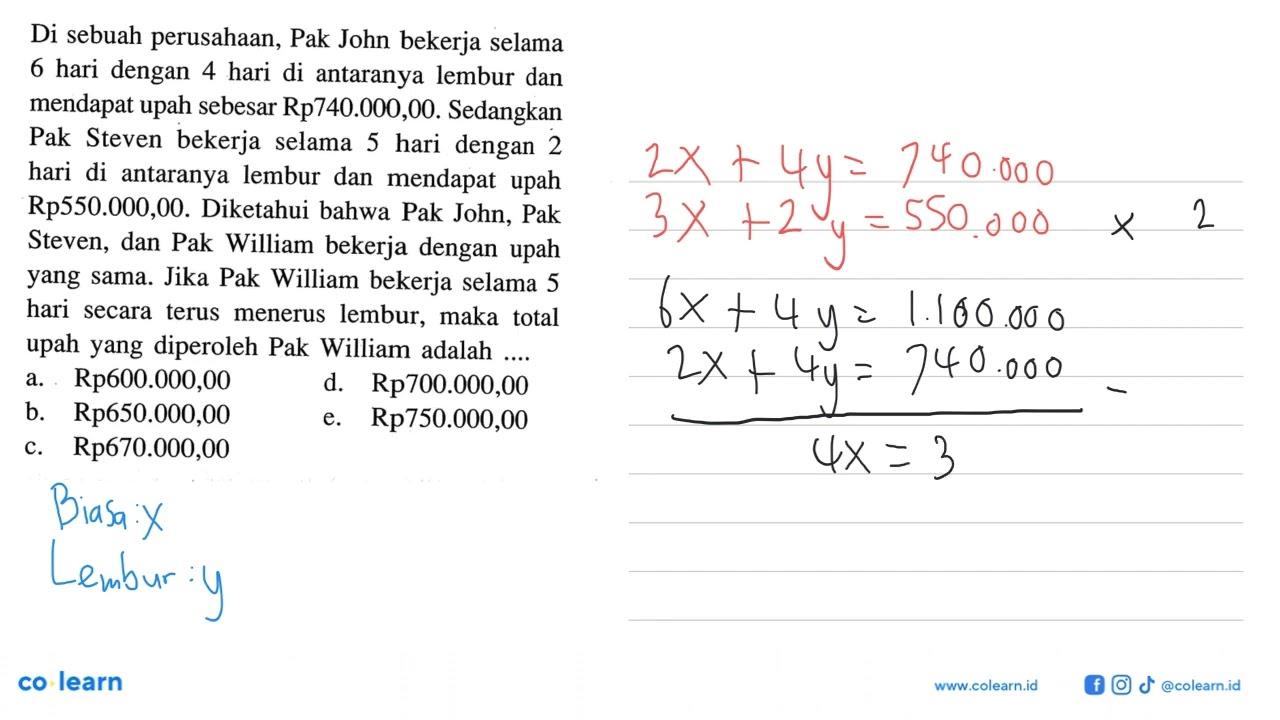 Di sebuah perusahaan, Pak John bekerja selama
6 hari dengan 4 hari di antaranya lembur dan
mendapat upah sebesar Rp740.000,00. Sedangkan
Pak Steven bekerja selama 5 hari dengan 2
hari di antaranya lembur dan mendapat upah
Rp550.000,00. Diketahui bahwa Pak John, Pak
Steven, dan Pak William bekerja dengan upah
yang sama. Jika Pak William bekerja selama 5
hari secara terus menerus lembur, maka total
upah yang diperoleh Pak William adalah ....
a. Rp600.000,00 d. Rp700.000,00
b. Rp650.000,00 e. Rp750.000,00
c. Rp670.000,00
Biasa : x
Lembur : y
2x + 4y = 740.000
3x + 2y = 550.000 x 2
6x + 4y = 1.100.000
2x + 4y = 740.000 -
4x = 3
co learn
www.colearn.id @colearn.id